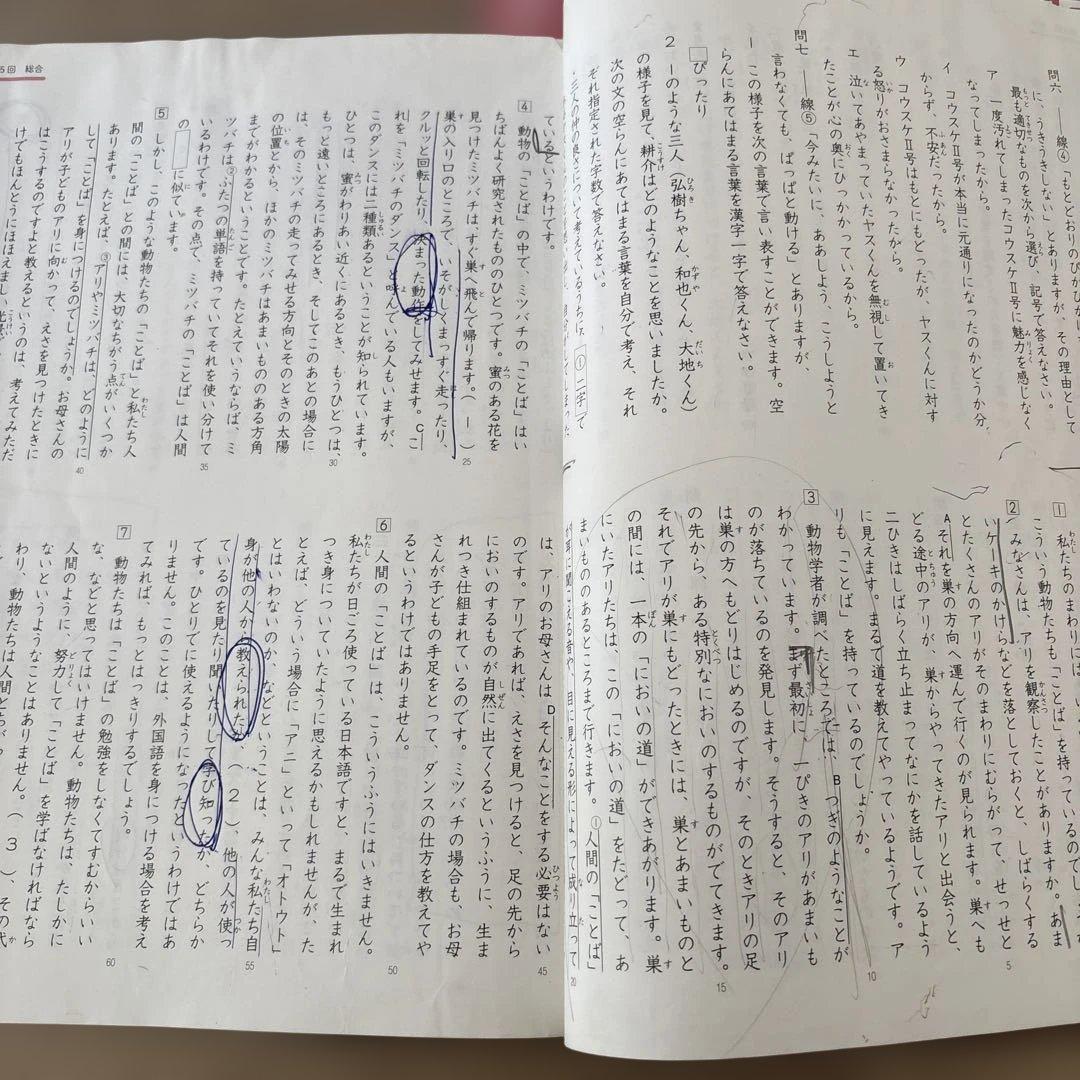 問六 ――線④「もとどおりのぴかぴか
に、うきうきしない」とありますが、その理由として
最も適切なものを次から選び、記号で答えなさい。
ア 一度汚れてしまったコウスケⅡ号に魅力を感じなく
なってしまったから。
イ コウスケⅡ号が本当に元通りになったのかどうか分
からず、不安だったから。
ウ コウスケⅡ号はもとにもどったが、ヤスくんに対す
る怒りがおさまらなかったから。
エ 泣いてあやまっていたヤスくんを無視して置いてき
たことが心の奥にひっかかっているから。
問七 ――線⑤「今みたいに、ああしよう、こうしようと
言わなくても、ぱっぱと動ける」とありますが、
1 この様子を次の言葉で言い表すことができます。空
らんにあてはまる言葉を漢字一字で答えなさい。
□ぴったり
2 1のような三人(弘樹ちゃん、和也くん、大地くん)
の様子を見て、耕介はどのようなことを思いましたか。
次の文の空らんにあてはまる言葉を自分で考え、それ
ぞれ指定された字数で答えなさい。
三人の仲の良さについて考えているうちに、①二字して
1 私たちのまわりに
こういう動物たちも「ことば」を持っているのでし
2 みなさんは、アリを観察したことがありますか。あま
いケーキのかけらなどを落としておくと、しばらくする
とたくさんのアリがそのまわりにむらがって、せっせと
Aそれを巣の方向へ運んで行くのが見られます。巣へも
どる途中のアリが、巣からやってきたアリと出会うと、
二ひきはしばらく立ち止まってなにかを話しているよう
に見えます。まるで道を教えてやっているようです。ア
リも「ことば」を持っているのでしょうか。
3 動物学者が調べたところでは、Bつぎのようなことが
わかっています。まず最初に、一ぴきのアリがあまいも
のが落ちているのを発見します。そうすると、そのアリ
は巣の方へもどりはじめるのですが、そのときアリの足
の先から、ある特別なにおいのするものがでてきます。
それでアリが巣にもどったときには、巣とあまいものと
の間には、一本の「においの道」ができあがります。巣
にいたアリたちは、この「においの道」をたどって、あ
まいもののあるところまで行きます。①人間の「ことば」
が耳に聞こえる音や、目に見える形によって成り立って
5
10
15
20
5回 総合
ているというわけです。
4 動物の「ことば」の中で、ミツバチの「ことば」はい
ちばんよく研究されたもののひとつです。蜜のある花を
見つけたミツバチは、すぐ巣へ飛んで帰ります。(1)
巣の入り口のところで、いそがしくまっすぐ走ったり、
クルッと回転したり、決まった動作をしてみせます。Cこ
れを「ミツバチのダンス」と呼んでいる人もいますが、
このダンスには二種類あるということが知られています。
ひとつは、蜜がわりあい近くにあるとき、もうひとつは、
もっと遠いところにあるとき、そしてこのあとの場合に
は、そのミツバチの走ってみせる方向とそのときの太陽
の位置とから、ほかのミツバチはあまいもののある方角
までがわかるということです。たとえていうならば、ミ
ツバチは②ふたつの単語を持っていてそれを使い分けて
いるわけです。その点で、ミツバチの「ことば」は人間
の□に似ています。
5 しかし、このような動物たちの「ことば」と私たち人
間の「ことば」との間には、大切なちがう点がいくつか
あります。たとえば、③アリやミツバチは、どのように
して「ことば」を身につけるのでしょうか。お母さんの
アリが子どものアリに向かって、えさを見つけたときに
はこうするのですよと教えるというのは、考えてみただ
けでもほんとうにほほえましい光景
25
30
35
40
は、アリのお母さんはDそんなことをする必要はない
のです。アリであれば、えさを見つけると、足の先から
においのするものが自然に出てくるというふうに、生ま
れつき仕組まれているのです。ミツバチの場合も、お母
さんが子どもの手足をとって、ダンスの仕方を教えてや
るというわけではありません。
6 人間の「ことば」は、こういうふうにはいきません。
私たちが日ごろ使っている日本語ですと、まるで生まれ
つき身についていたように思えるかもしれませんが、た
とえば、どういう場合に「アニ」といって「オトウト」
とはいわないのか、などということは、みんな私たち自
身が他の人から教えられたか、(2)、他の人が使っ
ているのを見たり聞いたりして学び知ったか、どちらか
です。ひとりでに使えるようになったというわけではあ
りません。このことは、外国語を身につける場合を考え
てみれば、もっとはっきりするでしょう。
7 動物たちは「ことば」の勉強をしなくてすむからいい
な、などと思ってはいけません。動物たちは、たしかに
人間のように、努力して「ことば」を学ばなければなら
ないというようなことはありません。(3)、その代
わり、動物たちは人間とちがっ
45
50
55
60